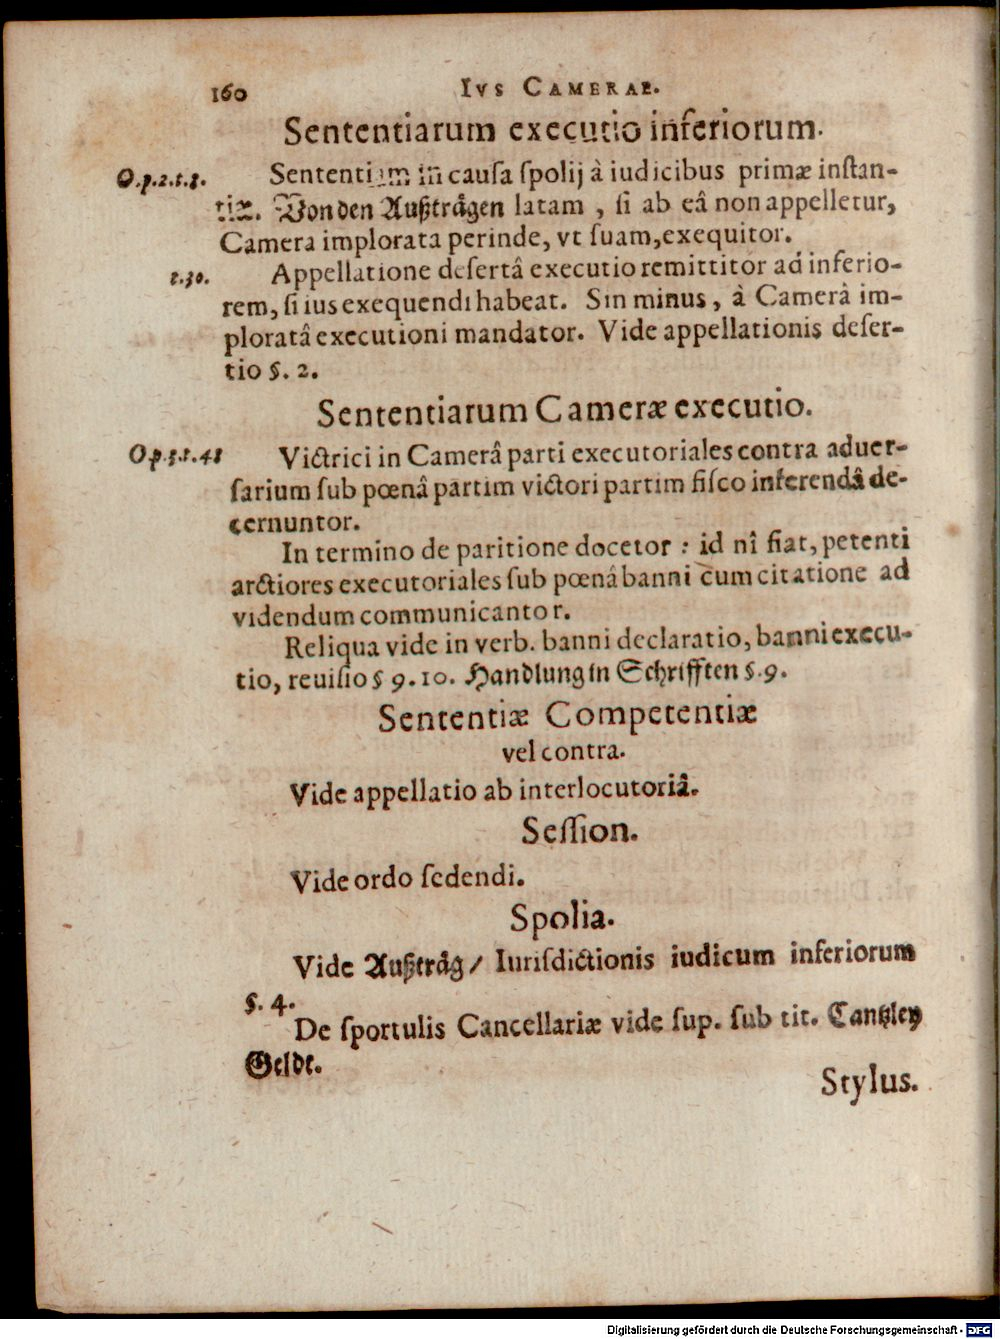 160 IVS CAMERAE.
Sententiarum executio inferiorum.
O.p.2.t.8. Sententiam in cauſa ſpolij à iudicibus primæ inſtan-
tiæ. Von den Außträgen latam, ſi ab eâ non appelletur,
Camera implorata perinde, vt ſuam, exequitor.
t.30. Appellatione deſertâ executio remittitor ad inferio-
rem, ſi ius exequendi habeat. Sin minus, à Camerâ im-
ploratâ executioni mandator. Vide appellationis deſer-
tio §. 2.
Sententiarum Cameræ executio.
O.p.3.t.48 Victrici in Camerâ parti executoriales contra aduer-
ſarium ſub pœnâ partim victori partim fiſco inferendâ de-
cernuntor.
In termino de paritione docetor : id nî fiat, petenti
arctiores executoriales ſub pœnâ banni cum citatione ad
videndum communicantor.
Reliqua vide in verb. banni declaratio, banni execu-
tio, reuiſio § 9. 10. Handlung in Schrifften §. 9.
Sententiæ Competentiæ
vel contra.
Vide appellatio ab interlocutoriâ.
Seſſion.
Vide ordo ſedendi.
Spolia.
Vide Außträg/ Iuriſdictionis iudicum inferiorum
§. 4.
De ſportulis Cancellariæ vide ſup. ſub tit. Cantzley
Geldt.
Stylus.
Digitalisierung gefördert durch die Deutsche Forschungsgemeinschaft - DFG